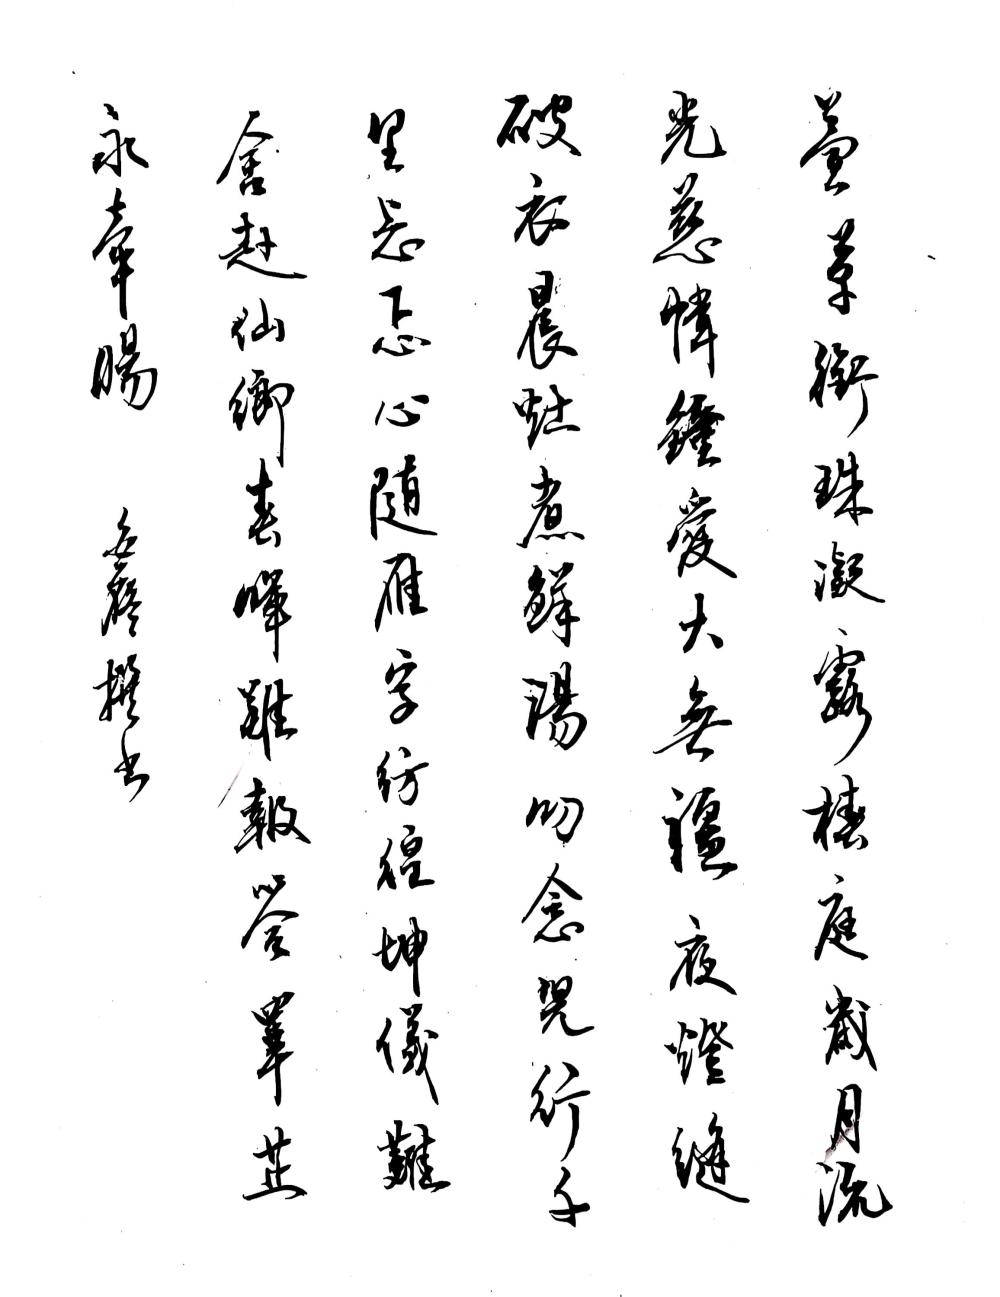 萱草銜珠凝露椿庭歲月流
光慈幃鍾愛大無疆夜燈縫
破衣晨灶煮鮮湯叨念兒行千
里忐忑心隨雁字彷徨坤儀難
舍赴仙鄉春暉難報答罩芷
永牽腸 撰书